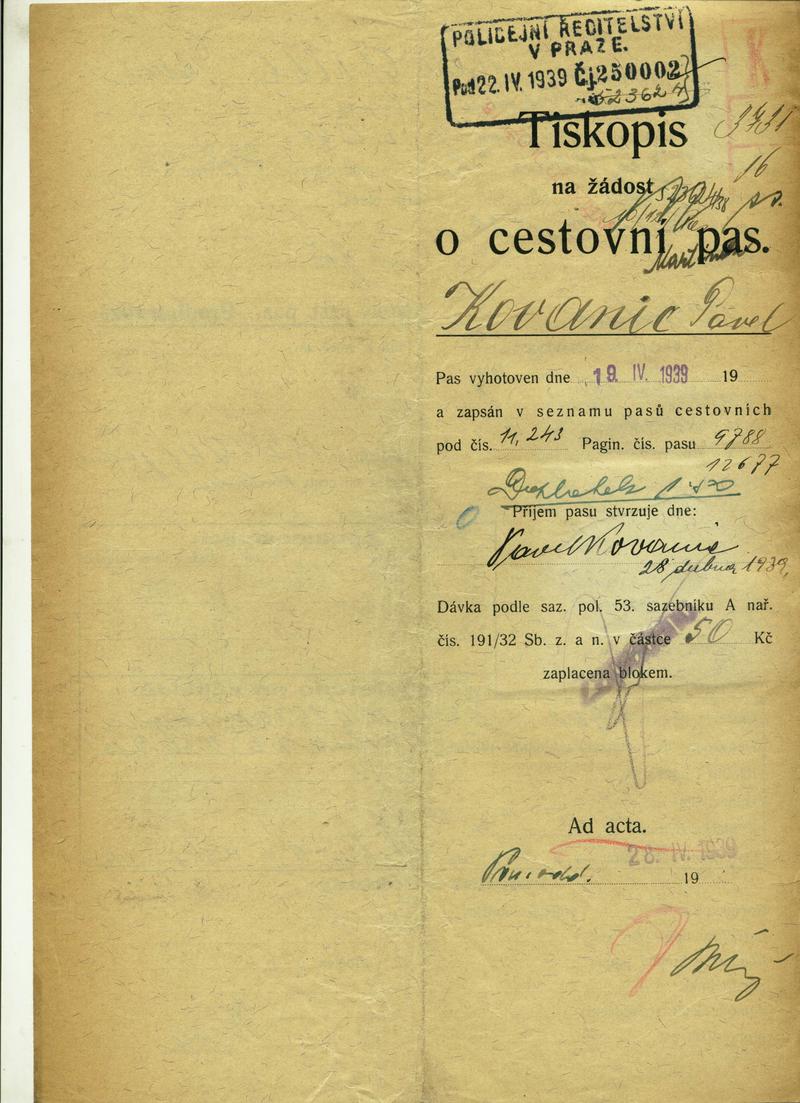 POLICEJNÍ ŘEDITELSTVÍ
V PRAZE.
22. IV. 1939 Čj. 250002
523624
Tiskopis
3731
na žádost
16
o cestovní pas.
Kovanic Pavel
Pas vyhotoven dne 19. IV. 1939 19
a zapsán v seznamu pasů cestovních
pod čís. 11,243 Pagin. čís. pasu 9788
12677
Příjem pasu stvrzuje dne:
Pavel Kovanic
28 dubna 1939.
Dávka podle saz. pol. 53. sazebníku A nař.
čís. 191/32 Sb. z. a n. v částce 50 Kč
zaplacena blokem.
Ad acta.
28. IV. 1939
19
K